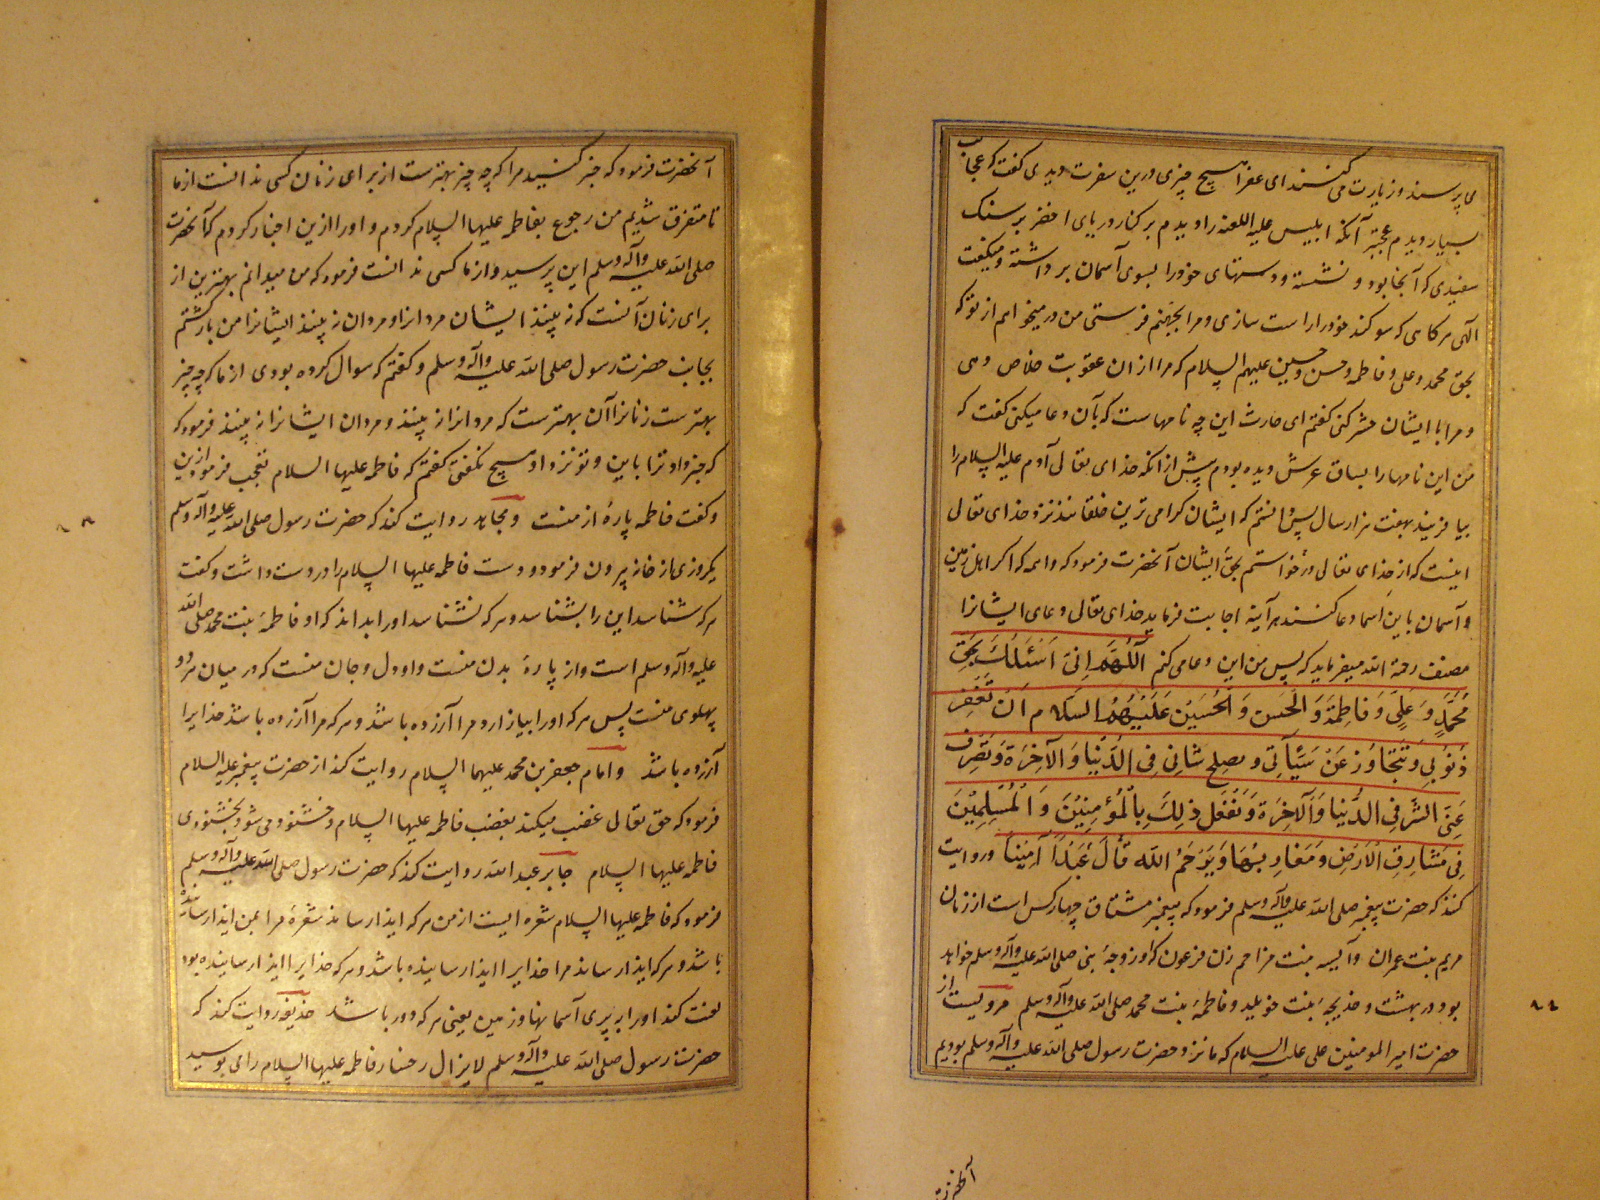 می پرسند و زیارت می کنند ای عفرا هیچ چیزی درین سفرت دیدی گفت که عجایب
بسیار دیدم عجبتر آنکه ابلیس علیه اللعنه را دیدم بر کنار دریای اخضر بر سنک
سفیدی که آنجا بود نشسته و دستهای خود را بسوی آسمان بر داشته و میکفت
الهی هر کاهی که سوکند خود را راست سازی و مرا بجهنم فرستی من در میخواهم از تو که
بحق محمد و علی و فاطمه و حسن و حسین علیهم السلام که مرا ازان عقوبت خلاص دهی
و مرا با ایشان حشر کنی کفتم ای حارث این چه نامهاست که بآن دعا میکنی کفت که
من این نامها را بساق عرش دیده بودم پیش از انکه خدای تعالی آدم علیه السلام را
بیافریند بهفت هزار سال پس دانستم که ایشان کرامی ترین خلقانند نزد خدای تعالی
اینست که از خدای تعالی درخواستم بحق ایشان آنحضرت فرمود که والله که اکر اهل زمین
و آسمان باین اسما دعا کنند هر آینه اجابت فرماید خدای تعالی دعای ایشانرا
مصنف رحمة الله میفرماید که پس من این دعا می کنم اَللّٰهُمَّ اِنّی اَسْئَلُكَ بِحَقِّ
مُحَمَّدٍ وَ عَلِیٍّ وَ فَاطِمَةَ وَ الْحَسَنِ وَ الْحُسَیْنِ عَلَیْهِمُ السَّلام اَنْ تَغْفِرَ
ذُنُوبِی وَ تَتَجَاوَزَ عَنْ سَیِّآتِی وَ تصلح شَانِی فِی الدُّنْیَا وَ الْآخِرَةِ وَ تَصْرِفَ
عَنِّی الشَّرَّ فِی الدُّنْیَا وَ الْآخِرَةِ وَ تَفْعَلَ ذٰلِكَ بِالْمُؤْمِنِیْنَ وَ الْمُسْلِمِیْنَ
فِی مَشَارِقِ الْاَرْضِ وَ مَغَارِبِهَا وَ یَرْحَمُ اللّٰه قَالَ عَبْدًا آمِیْنًا و روایت
کنند که حضرت پیغمبر صلی الله علیه وآله وسلم فرمود که پیغمبر مشتاق چهار کس است از زنان
مریم بنت عمران و آسیه بنت مزاحم زن فرعون که او زوجهٔ نبی صلی الله علیه وآله وسلم خواهد
بود در بهشت و خدیجهٔ بنت خویلد و فاطمهٔ بنت محمد صلی الله علیه وآله وسلم مرویست از
حضرت امیر المومنین علی علیه السلام که ما نزد حضرت رسول صلی الله علیه وآله وسلم بودیم
آنحضرت
۸۸
آنحضرت فرمود که خبر کنید مرا که چه چیز بهتر ست از برای زنان کسی ندانست از ما
تا متفرق شدیم من رجوع بفاطمه علیها السلام کردم و او را ازین اخبار کردم که آنحضرت
صلی الله علیه وآله وسلم این پرسید و از ما کسی ندانست فرمود که من میدانم بهترین از
برای زنان آنست که نه بینند ایشان مردانرا و مردان نه بینند ایشانرا من باز کشتم
بجانب حضرت رسول صلی الله علیه وآله وسلم و کفتم که سوال کرده بودی از ما که چه چیز
بهتر ست زنانرا آن بهتر ست که مردانرا نه بینند و مردان ایشانرا نه بینند فرمود که
که خبر داد ترا باین و تو نزد او هیچ نکفتی کفتم که فاطمه علیها السلام تعجب فرمود ازین
و کفت فاطمه پارهٔ از منست و مجاهد روایت کند که حضرت رسول صلی الله علیه وآله وسلم
یکروزی از خانه بیرون فرمود و دست فاطمه علیها السلام را در دست داشت و کفت
هر که شناسد این را بشناسد و هر که نشناسد او را بداند که او فاطمهٔ بنت محمد صلی الله
علیه وآله وسلم است و از پارهٔ بدن منست و او دل و جان منست که در میان هر دو
پهلوی منست پس هر که او را بیازارد مرا آزرده باشد و هر که مرا آزرده باشد خدایرا
آزرده باشد و امام جعفر بن محمد علیهما السلام روایت کند از حضرت پیغمبر علیه السلام
فرمود که حق تعالی غضب میکند بغضب فاطمه علیها السلام و خشنود می شود بخشنودی
فاطمه علیها السلام جابر عبد الله روایت کند که حضرت رسول صلی الله علیه وآله وسلم
فرمود که فاطمه علیها السلام شعره ایست از من هر که ایذا رساند شعرهٔ مرا بمن ایذا رسانیده
باشد و هر که ایذا رساند مرا خدایرا ایذا رسانیده باشد و هر که خدایرا ایذا رسانیده بود
لعنت کند او را به پری آسمانها و زمین یعنی هر که درو باشد حذیفه روایت کند که
حضرت رسول صلی الله علیه وآله وسلم لایزال رخسار فاطمه علیها السلام را می بوسید